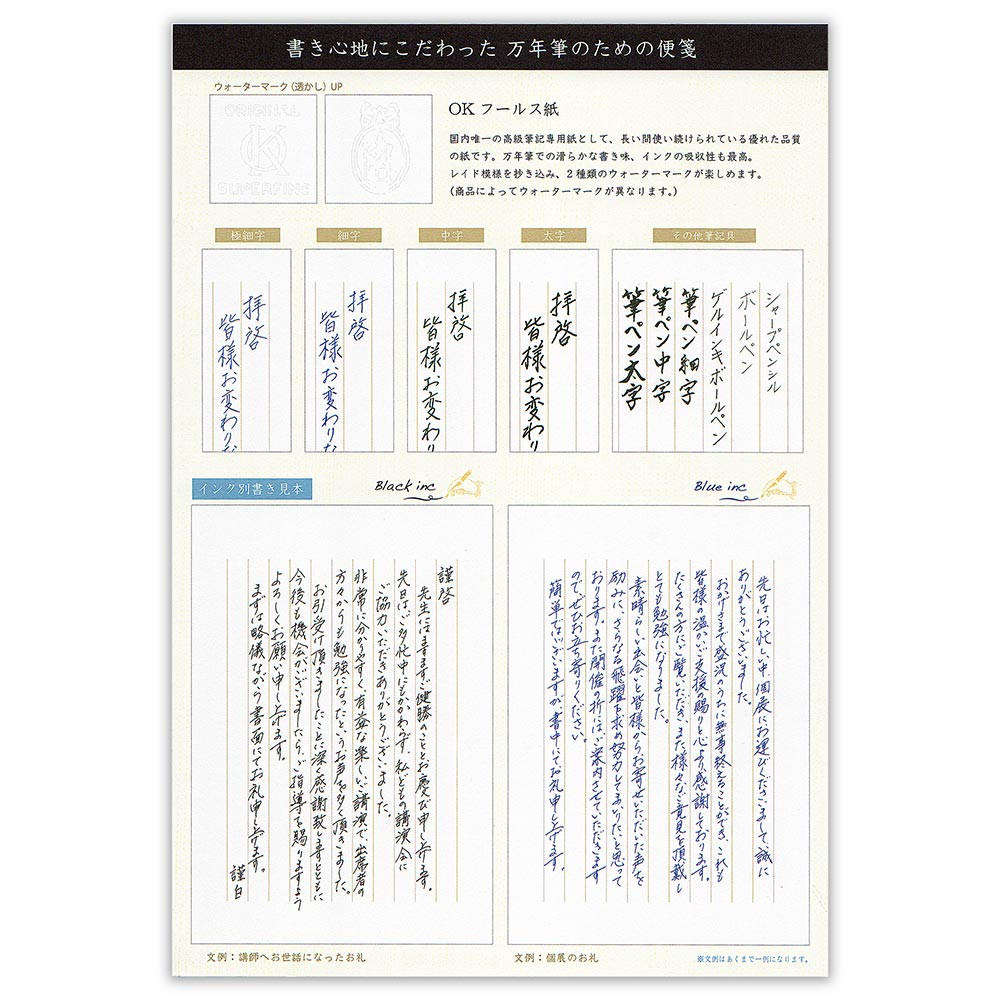 書き心地にこだわった 万年筆のための便箋
ウォーターマーク（透かし）UP
ORIGINAL
OK
SUPERFINE
OKフールス紙
国内唯一の高級筆記専用紙として、長い間使い続けられている優れた品質
の紙です。万年筆での滑らかな書き味、インクの吸収性も最高。
レイド模様を抄き込み、2種類のウォーターマークが楽しめます。
（商品によってウォーターマークが異なります。）
極細字
拝啓
皆様お変わりな
細字
拝啓
皆様お変わりな
中字
拝啓
皆様お変わり
太字
拝啓
皆様お変わり
その他筆記具
シャープペンシル
ボールペン
ゲルインキボールペン
筆ペン細字
筆ペン中字
筆ペン太字
インク別書き見本
Black inc
謹啓
先生にはますますご健勝のこととお慶び申し上げます。
先日は、ご多忙中にもかかわらず、私どもの講演会に
ご協力いただきありがとうございました。
非常に分かりやすく、有益な楽しいご講演で、出席者の
方々からも勉強になったというお声を多く頂きました。
お引受け頂きましたことに深く感謝致しますとともに
今後も機会がございましたら、ご指導を賜りますよう
よろしくお願い申し上げます。
まずは略儀ながら書面にてお礼申し上げます。
謹白
文例：講師へお世話になったお礼
Blue inc
先日はお忙しい中、個展にお運びくださいまして、誠に
ありがとうございました。
おかげさまで盛況のうちに無事終えることができ、これも
皆様の温かいご支援の賜りと心より感謝しております。
たくさんの方にご覧いただき、また様々なご意見を頂戴し
とても勉強になりました。
素晴らしい出会いと皆様からお寄せいただいた声を
励みに、さらなる飛躍を求め努力してまいりたいと思って
おります。また開催の折にはご案内させていただきます
ので、ぜひお立ち寄りください。
簡単ではございますが、書中にてお礼申し上げます。
文例：個展のお礼
※文例はあくまで一例になります。